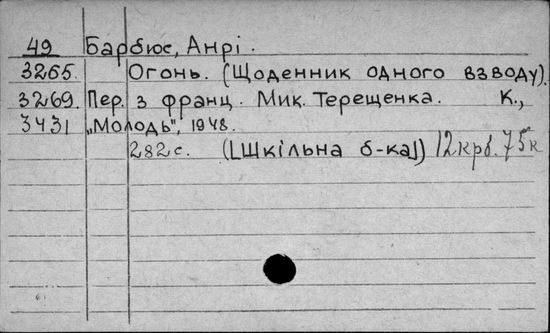 49 Барбюс, Анрі.
3265. Огонь. (Щоденник одного взводу).
3269. Пер. з франц. Мик. Терещенка. К.,
3431 „Молодь", 1948.
282 с. ([Шкільна б-ка]) 12 крб. 75 к